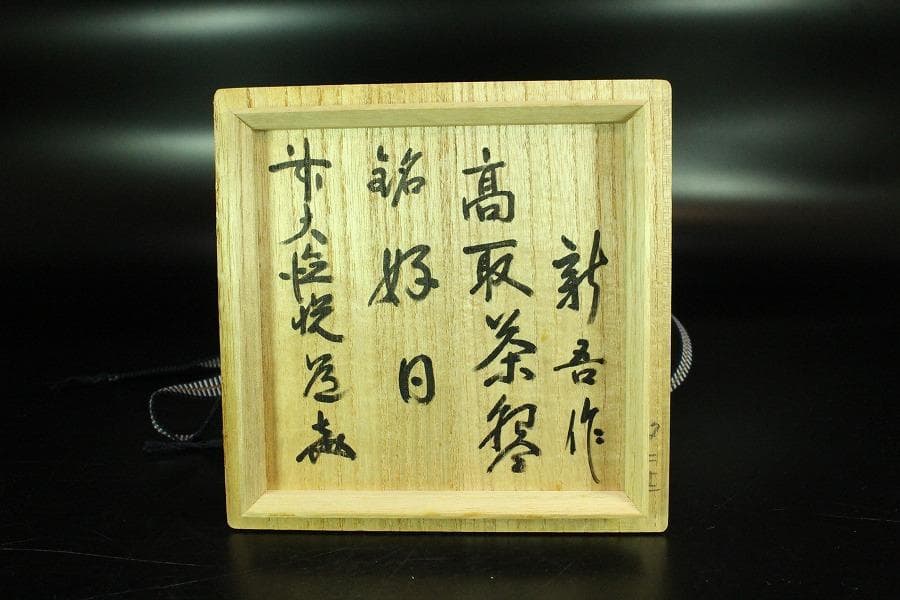 新吾作
高取茶盌
銘 好日
前大徳悦道